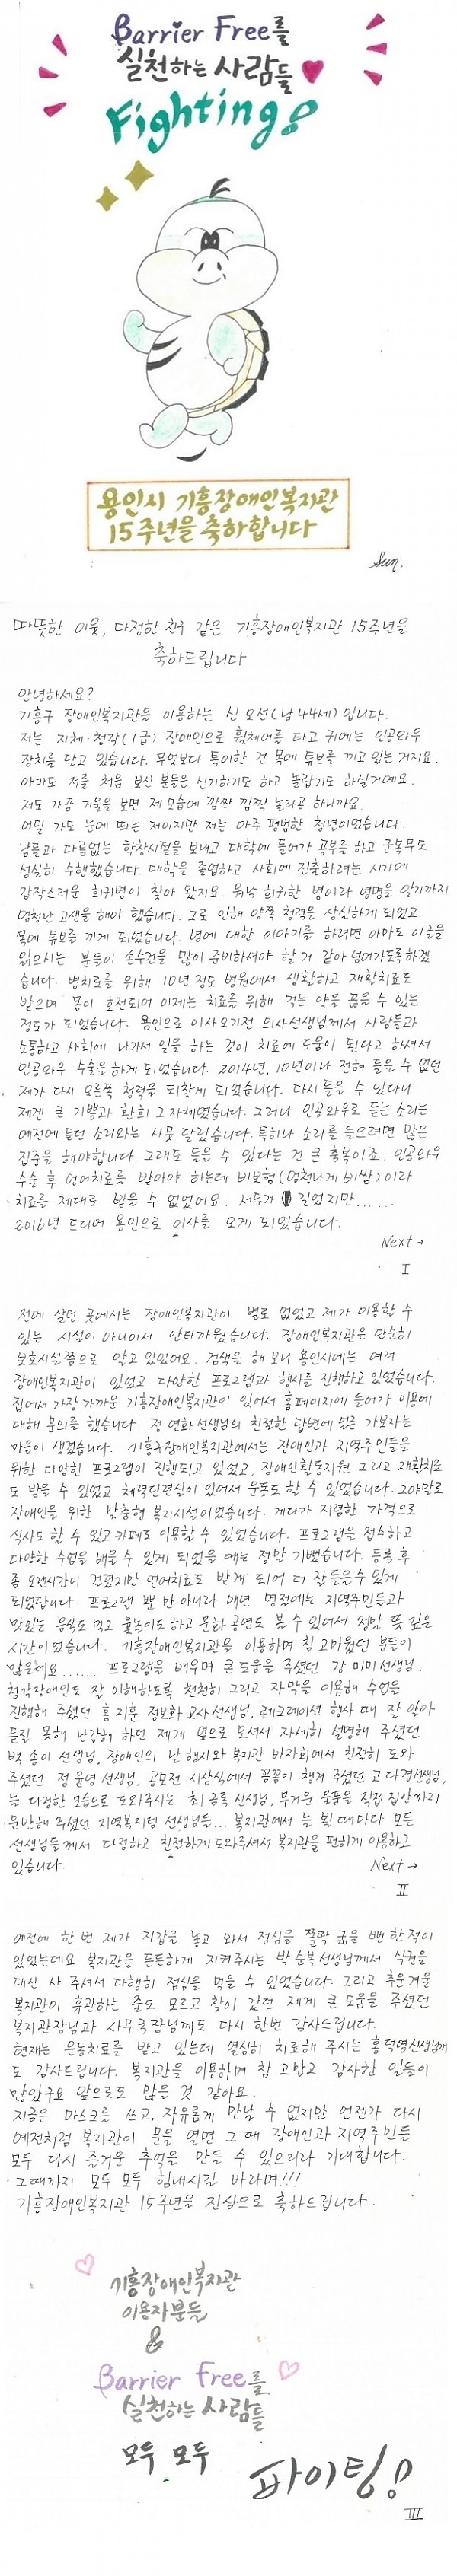 Barrier Free를
실천하는 사람들
Fighting!
용인시 기흥장애인복지관
15주년을 축하합니다
Sun.
따뜻한 이웃, 다정한 친구 같은 기흥장애인복지관 15주년을
축하드립니다
안녕하세요?
기흥구 장애인복지관을 이용하는 신오선(남 44세)입니다.
저는 지체·청각(1급) 장애인으로 휠체어를 타고 귀에는 인공와우
장치를 달고 있습니다. 무엇보다 특이한 건 목에 튜브를 끼고 있는 거지요.
아마도 저를 처음 보신 분들은 신기하기도 하고 놀랍기도 하실거에요.
저도 가끔 거울을 보면 제 모습에 깜짝 깜짝 놀라곤 하니까요.
어딜 가도 눈에 띄는 저이지만 저는 아주 평범한 청년이었습니다.
남들과 다름없는 학창시절을 보내고 대학에 들어가 공부를 하고 군복무도
성실히 수행했습니다. 대학을 졸업하고 사회에 진출하려는 시기에
갑작스러운 희귀병이 찾아 왔지요. 워낙 희귀한 병이라 병명을 알기까지
엄청난 고생을 해야 했습니다. 그로 인해 양쪽 청력을 상실하게 되었고
목에 튜브를 끼게 되었습니다. 병에 대한 이야기를 하려면 아마도 이 글을
읽으시는 분들이 손수건을 많이 준비하셔야 할 거 같아 넘어가도록하겠
습니다. 병치료를 위해 10년 정도 병원에서 생활하고 재활치료도
받으며 몸이 호전되어 이제는 치료를 위해 먹는 약을 끊을 수 있는
정도가 되었습니다. 용인으로 이사오기전 의사선생님께서 사람들과
소통하고 사회에 나가서 일을 하는 것이 치료에 도움이 된다고 하셔서
인공와우 수술을 하게 되었습니다. 2014년, 10년이나 전혀 들을 수 없던
제가 다시 오른쪽 청력을 되찾게 되었습니다. 다시 들을 수 있다니
제겐 큰 기쁨과 환희 그 자체였습니다. 그러나 인공와우로 듣는 소리는
예전에 듣던 소리와는 사뭇 달랐습니다. 특히나 소리를 들으려면 많은
집중을 해야합니다. 그래도 들을 수 있다는 건 큰 축복이죠. 인공와우
수술 후 언어치료를 받아야 하는데 비보험(엄청나게 비쌈)이라
치료를 제대로 받을 수 없었어요. 서두가 길었지만......
2016년 드디어 용인으로 이사를 오게 되었습니다.
Next →
I
전에 살던 곳에서는 장애인복지관이 별로 없었고 제가 이용할 수
있는 시설이 아니어서 안타까웠습니다. 장애인복지관은 단순히
보호시설쯤으로 알고 있었어요. 검색을 해 보니 용인시에는 여러
장애인복지관이 있었고 다양한 프로그램과 행사를 진행하고 있었습니다.
집에서 가장 가까운 기흥장애인복지관이 있어서 홈페이지에 들어가 이용에
대해 문의를 했습니다. 정연화 선생님의 친절한 답변에 얼른 가보자는
마음이 생겼습니다. 기흥구장애인복지관에서는 장애인과 지역주민들을
위한 다양한 프로그램이 진행되고 있었고, 장애인활동지원 그리고 재활치료
도 받을 수 있었고 체력단련실이 있어서 운동도 할 수 있었습니다. 그야말로
장애인을 위한 맞춤형 복지시설이었습니다. 게다가 저렴한 가격으로
식사도 할 수 있고 카페도 이용할 수 있었습니다. 프로그램을 접수하고
다양한 수업을 배울 수 있게 되었을 때는 정말 기뻤습니다. 등록 후
좀 오랜시간이 걸렸지만 언어치료도 받게 되어 더 잘 들을 수 있게
되었답니다. 프로그램 뿐 만 아니라 매년 명절에는 지역주민들과
맛있는 음식도 먹고 윷놀이도 하고 문화 공연도 볼 수 있어서 정말 뜻 깊은
시간이었습니다. 기흥장애인복지관을 이용하며 참 고마웠던 분들이
많은데요...... 프로그램을 배우며 큰 도움을 주셨던 강미미 선생님,
청각장애인도 잘 이해하도록 천천히 그리고 자막을 이용해 수업을
진행해 주셨던 홍지훈 정보화 교사선생님, 레크레이션 행사 때 잘 알아
듣질 못해 난감해 하던 제게 옆으로 오셔서 자세히 설명해 주셨던
백송이 선생님, 장애인의 날 행사와 복지관 바자회에서 친절히 도와
주셨던 정윤영 선생님, 공모전 시상식에서 꼼꼼이 챙겨 주셨던 고다경선생님,
늘 다정한 모습으로 도와주시는 최금록 선생님, 무거운 물품을 직접 집안까지
운반해 주셨던 지역복지팀 선생님들... 복지관에서 늘 뵐 때마다 모든
선생님들께서 다정하고 친절하게 도와주셔서 복지관을 편하게 이용하고
있습니다.
Next →
II
예전에 한 번 제가 지갑을 놓고 와서 점심을 쫄딱 굶을 뻔 한 적이
있었는데요 복지관을 든든하게 지켜주시는 박순복선생님께서 식권을
대신 사 주셔서 다행히 점심을 먹을 수 있었습니다. 그리고 추운겨울
복지관이 휴관하는 줄도 모르고 찾아 갔던 제게 큰 도움을 주셨던
복지관장님과 사무국장님께도 다시 한번 감사드립니다.
현재는 운동치료를 받고 있는데 열심히 치료해 주시는 홍덕영선생님께
도 감사드립니다. 복지관을 이용하며 참 고맙고 감사한 일들이
많았구요 앞으로도 많을 것 같아요.
지금은 마스크를 쓰고, 자유롭게 만날 수 없지만 언젠가 다시
예전처럼 복지관이 문을 열면 그 때 장애인과 지역주민들
모두 다시 즐거운 추억을 만들 수 있으리라 기대합니다.
그때까지 모두 모두 힘내시길 바라며!!!
기흥장애인복지관 15주년을 진심으로 축하드립니다.
기흥장애인복지관
이용자분들
&
Barrier Free를
실천하는 사람들
모두 모두
파이팅!
III